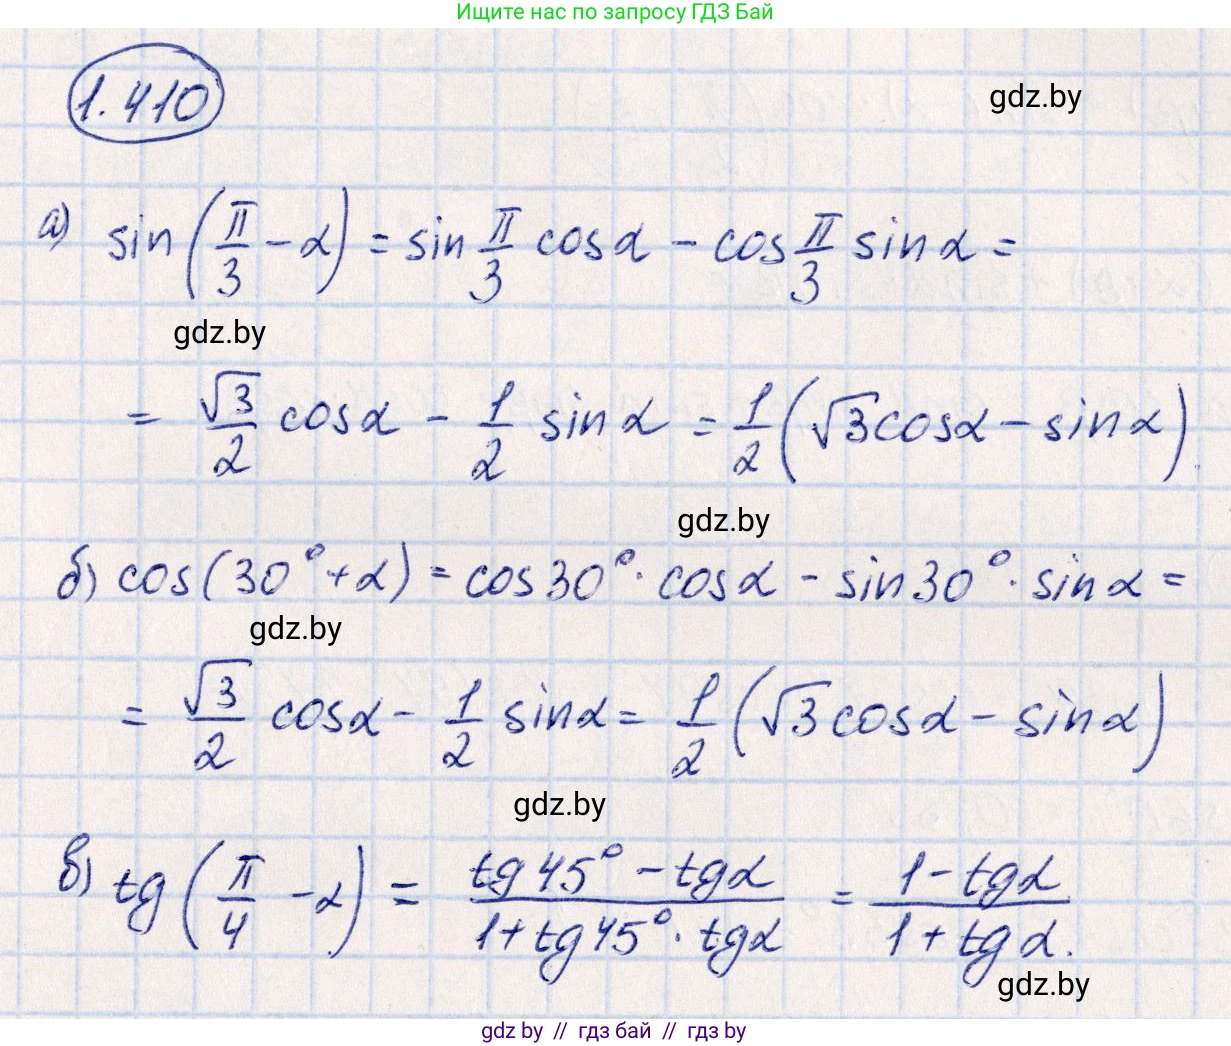 Ищите нас по запросу ГДЗ Бай
1.410
gdz.by
а) sin(π/3 - α) = sin π/3 cosα - cos π/3 sinα =
gdz.by
= √3/2 cosα - 1/2 sinα = 1/2 (√3cosα - sinα).
gdz.by
б) cos(30° + α) = cos30° · cosα - sin30° · sinα =
gdz.by
= √3/2 cosα - 1/2 sinα = 1/2 (√3cosα - sinα)
gdz.by
в) tg(π/4 - α) = (tg45° - tgα)/(1 + tg45° · tgα) = (1 - tgα)/(1 + tgα).
gdz.by
gdz by // гдз бай // гдз by